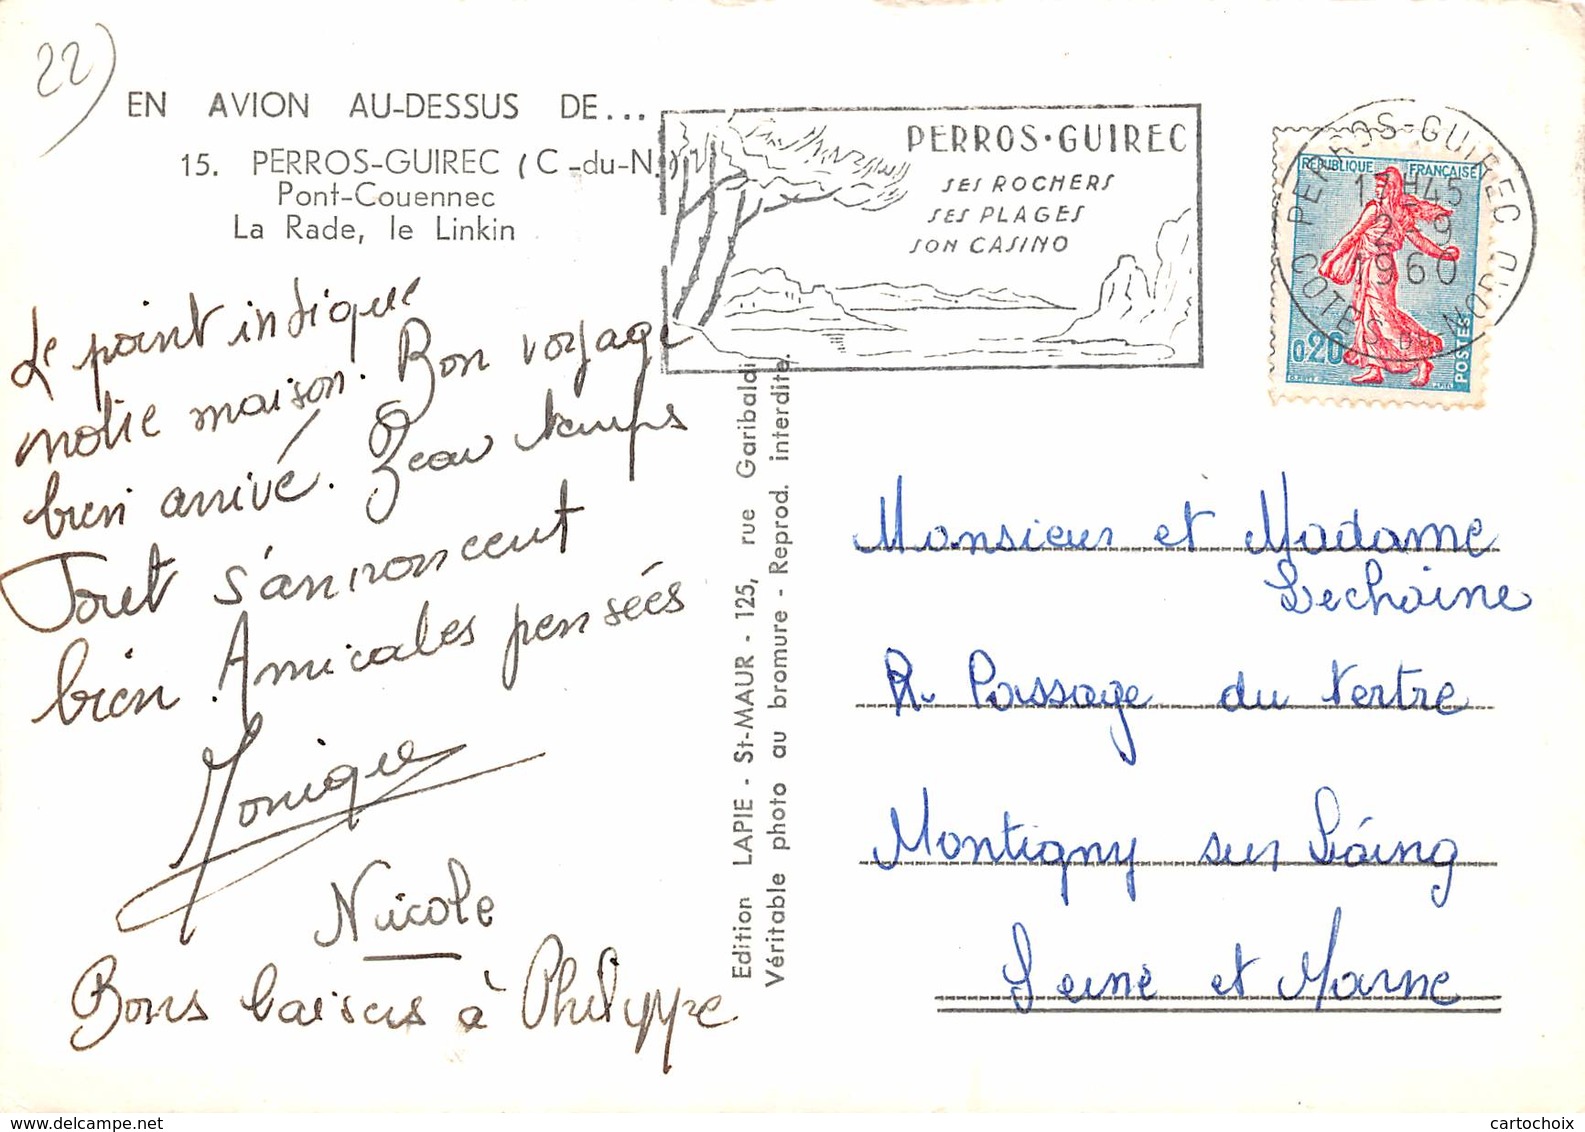 22)
EN AVION AU-DESSUS DE...
15. PERROS-GUIREC (C-du-N.)
Pont-Couennec
La Rade, le Linkin
PERROS-GUIREC
SES ROCHERS
SES PLAGES
SON CASINO
PERROS-GUIREC
COTES DU NORD
17H45
9
1960
REPUBLIQUE FRANÇAISE
0,20
POSTES
Le point indique
notre maison. Bon voyage
bien arrivé. Beau temps
Tout s'annoncent
bien. Amicales pensées
Monique
Nicole
Bons baisers à Philippe
Edition LAPIE - St-MAUR - 125, rue Garibaldi
Véritable photo au bromure - Reprod. interdite.
Monsieur et Madame
Lechaine
R. Passage du Tertre
Montigny sur Loing
Seine et Marne
www.delcampe.net
cartochoix